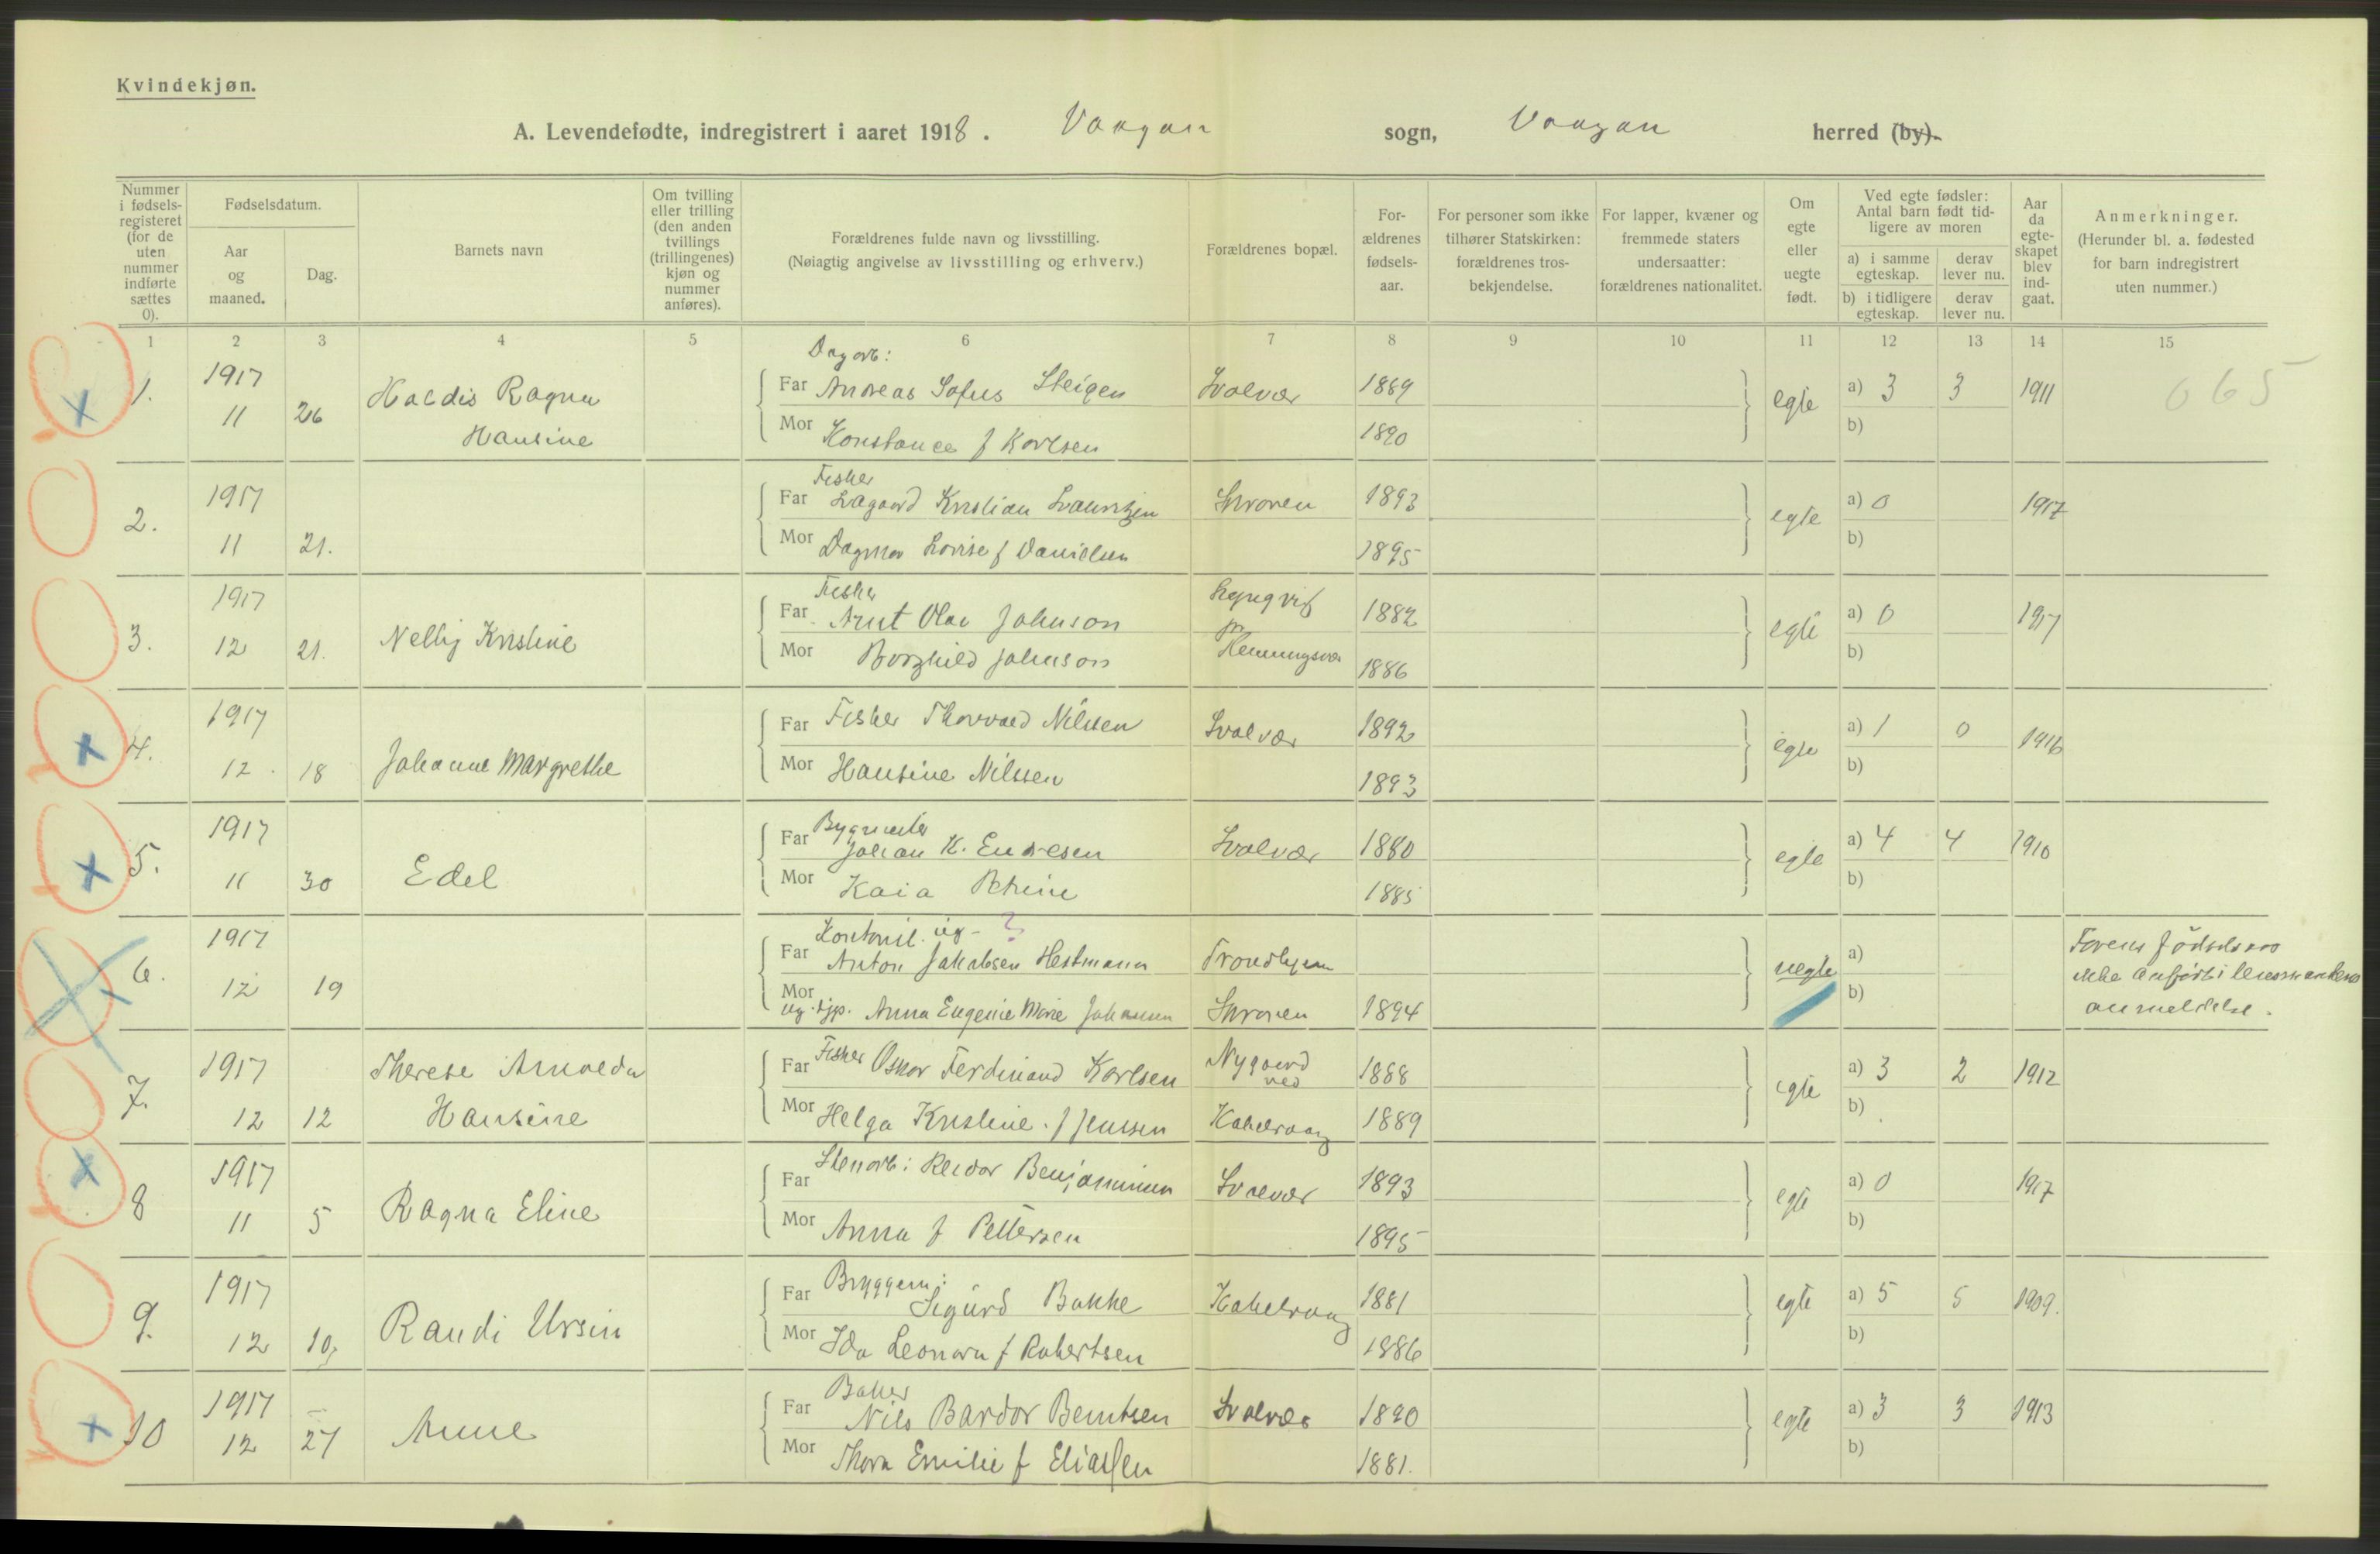 Kvindekjøn.
A. Levendefødte, indregistrert i aaret 1918. Vaagan sogn, Vaagan herred (by).
Nummer i fødsels-registeret (for de uten nummer indførte sættes 0).
Fødselsdatum.
Aar og maaned.
Dag.
Barnets navn
Om tvilling eller trilling (den anden tvillings (trillingenes) kjøn og nummer anføres).
Forældrenes fulde navn og livsstilling.
(Nøiagtig angivelse av livsstilling og erhverv.)
Forældrenes bopæl.
For-ældrenes fødsels-aar.
For personer som ikke tilhører Statskirken: forældrenes tros-bekjendelse.
For lapper, kvæner og fremmede staters undersaatter: forældrenes nationalitet.
Om egte eller uegte født.
Ved egte fødsler: Antal barn født tid-ligere av moren
a) i samme egteskap.
derav lever nu.
b) i tidligere egteskap.
derav lever nu.
Aar da egte-skapet blev ind-gaat.
Anmerkninger.
(Herunder bl. a. fødested for barn indregistrert uten nummer.)
1 2 3 4 5 6 7 8 9 10 11 12 13 14 15
Dagarb:
1. 1917 Far Andreas Sofus Steigen Svolvær 1889 egte a) 3 3 1911 665
11 26 Haldis Ragna Hansine Mor Konstance f Karlsen 1890 b)
Fisker
2. 1917 Far Kristian Skroven 1893 egte a) 0 1917
11 21. Mor Dagmar Lovise f Danielsen 1895 b)
Fisker
3. 1917 Far Olav Johnson 1882 egte a) 0 1917
12 21. Nelly Kristine Mor Borghild Johnson Henningsvær 1886 b)
4. 1917 Far Fisker Thorvald Nilssen Svolvær 1892 egte a) 1 0 1916
12 18 Johanne Margrethe Mor Hansine Nilssen 1893 b)
Bygmester
5. 1917 Far Johan K. Endresen Svolvær 1880 egte a) 4 4 1910
11 30 Edel Mor Kaia Petrine 1885 b)
Kontorist. ug- ?
6. 1917 Far Anton Jakobsen Hestmann Trondhjem uegte a) Farens fødselsaar
12 19 Mor ug. tjp. Anna Eugenie Marie Johansen Skroven 1894 b) ikke anført i
anmeldelse.
7. 1917 Therese Arnolda Far Fisker Oskar Ferdinand Karlsen Nygaard ved 1888 egte a) 3 2 1912
12 12 Hansine Mor Helga Kristine f Jenssen Kabelvaag 1889 b)
8 1917 Far Stenarb: Reidar Benjaminsen Svolvær 1893 egte a) 0 1917
11 5 Ragna Eline Mor Anna f Pettersen 1895 b)
9. 1917 Far Sigurd Bakke Kabelvaag 1881 egte a) 5 5 1909.
12 10, Randi Ursin Mor Ida Leonora f Robertsen 1886 b)
Baker
10 1917 Far Nils Bardor Berntsen Svolvær 1890 egte a) 3 3 1913
12 27 Anne Mor Thora Emilie f Eliassen 1881. b)